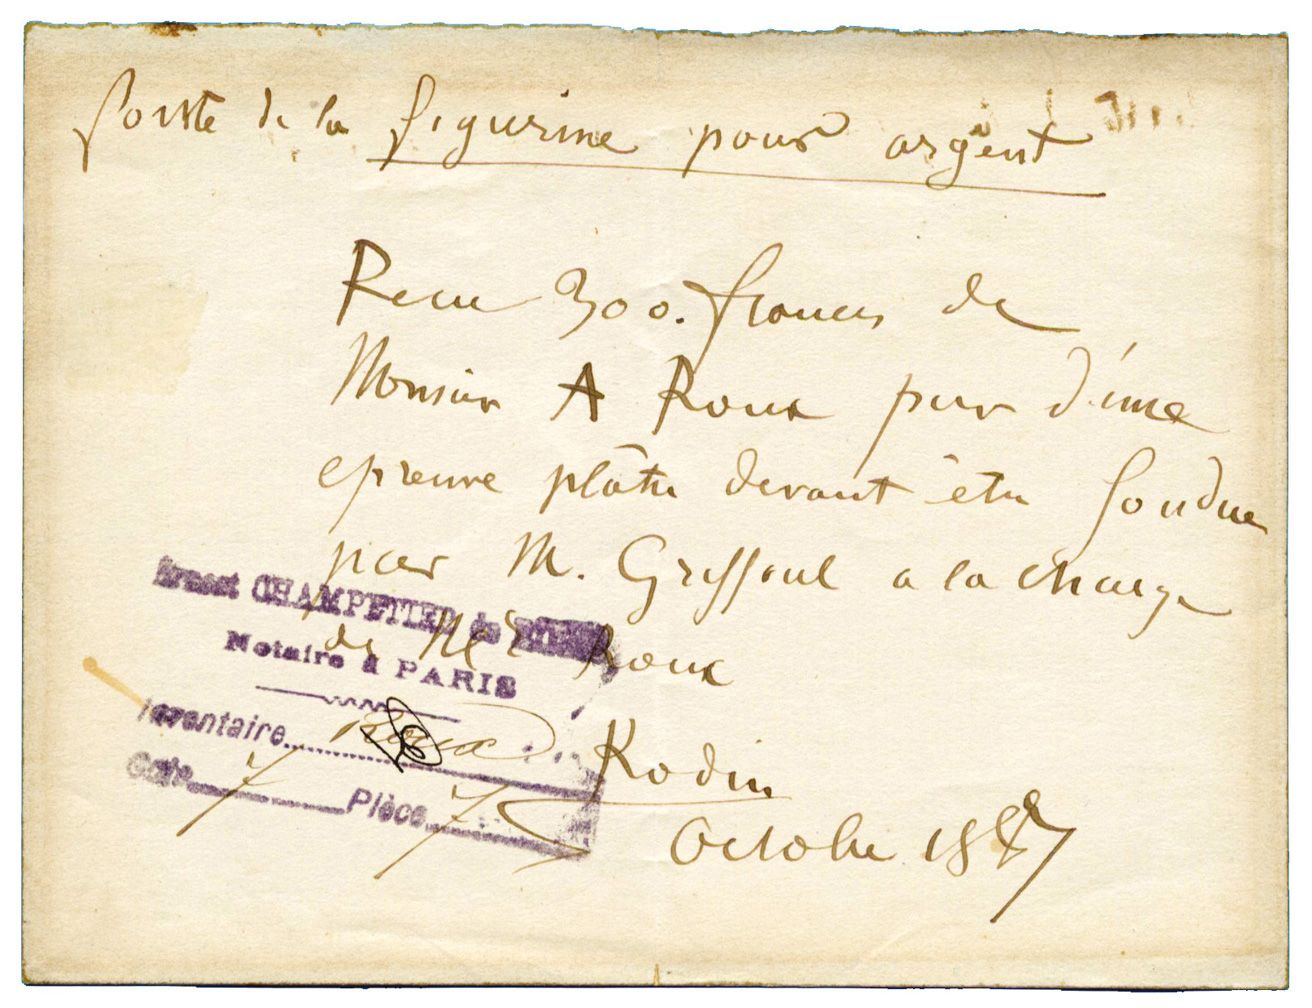 fonte de la figurine pour argent
Recu 300. francs de
Monsieur A Roux pour d'une
epreuve plâtre devant être fondue
par M. Griffoul a la charge
de Mr Roux
Rodin
Octobre 1887
Ernest CHAMPETIER de
Notaire à PARIS
Inventaire Roux
Cote 7 Pièce 7